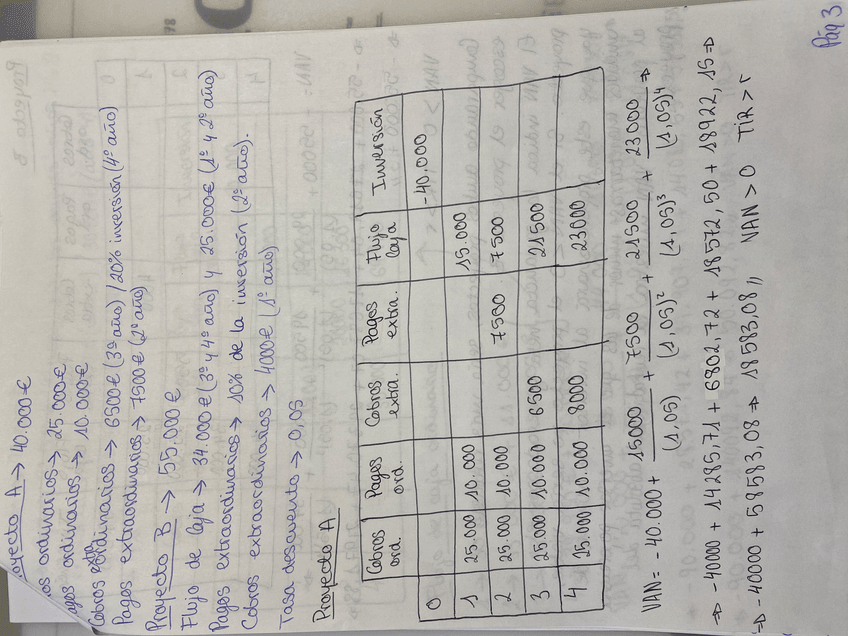 Proyecto A → 40.000€
ordinarios → 25.000€
Pagos ordinarios → 10.000€
Cobros extraordinarios → 6500€ (3º año) / 20% inversión (4º año)
Pagos extraordinarios → 7500€ (2º año)
Proyecto B → 55.000€
Flujo de caja → 34.000€ (3º y 4º año) y 25.000€ (1º y 2º año)
Pagos extraordinarios → 10% de la inversión (2º año).
Cobros extraordinarios → 4000€ (1º año)
Tasa descuento → 0,05
Proyecto A
Cobros ord. Pagos ord. Cobros extra. Pagos extra. Flujo caja Inversión
0 -40.000
1 25.000 10.000 15.000
2 25.000 10.000 7500 7500
3 25.000 10.000 6500 21500
4 25.000 10.000 8000 23000
VAN = -40.000 + 15000/(1,05) + 7500/(1,05)² + 21500/(1,05)³ + 23000/(1,05)⁴ ⇒
⇒ -40000 + 14285,71 + 6802,72 + 18572,50 + 18922,15 ⇒
⇒ -40000 + 58583,08 ⇒ 18583,08,, VAN > 0 TIR > r
Pág 3